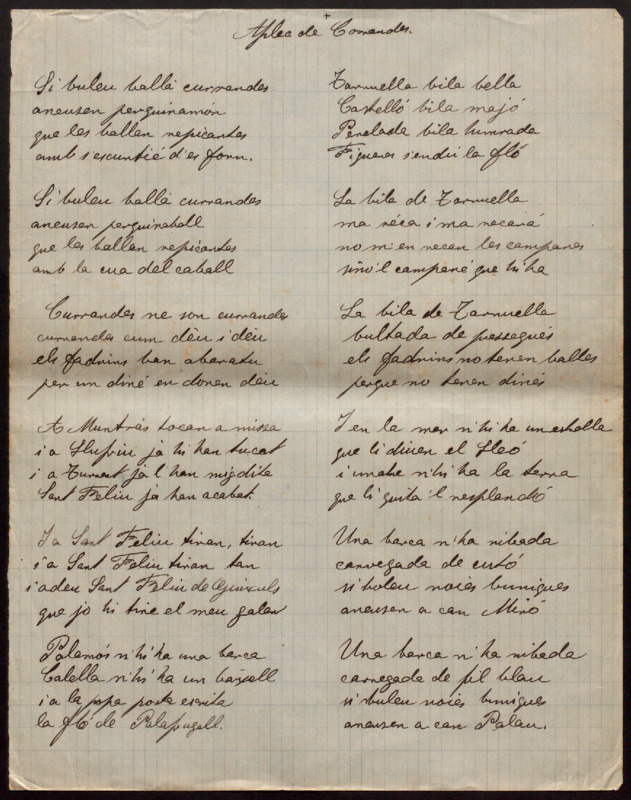 Aplec de Corrandes.
Si buleu ballà currandes
aneusen perquinamón
que les ballen repicantes
amb s'escurtié d'es forn.
Si buleu ballà currandes
aneusen perquinaball
que les ballen repicantes
amb la cua del caball
Currandes ne son currandes
currandes cum dèu i dèu
els fadrins ban abaratu
per un diné en donen dèu
A Muntràs tocan a missa
i a Llufriu ja hi han tucat
i a Turrent ja l han mig dita
Sant Feliu ja han acabat.
I a Sant Feliu tiran, tiran
i a Sant Feliu tiran tan
i adeu Sant Feliu de Guixuls
que jo hi tinc el meu galan
Palamós n'hi ha una barca
Calella n'hi ha un baixell
i a la popa porta escrita
la fló de Palafugell.
Tarruella bila bella
Castelló bila majó
Perelada bila hunrada
Figueres s'endú la fló
La bila de Tarruella
ma réca i ma recará
no m'en recan les campanes
sinó'l campané que hi ha
La bila de Tarruella
bultada de pessegués
els fadrins no tenen balles
perque no tenen dinés
I en la mar n'hi ha un estrella
que li diuen el Lleó
i unabe n'hi ha la terra
que li quita 'l resplandó
Una barca n'ha ribada
carregada de cutó
si buleu noies buniques
aneusen a can Miró
Una barca n'ha ribada
carregada de fil blau
si buleu noies buniques
aneusen a can Palau.